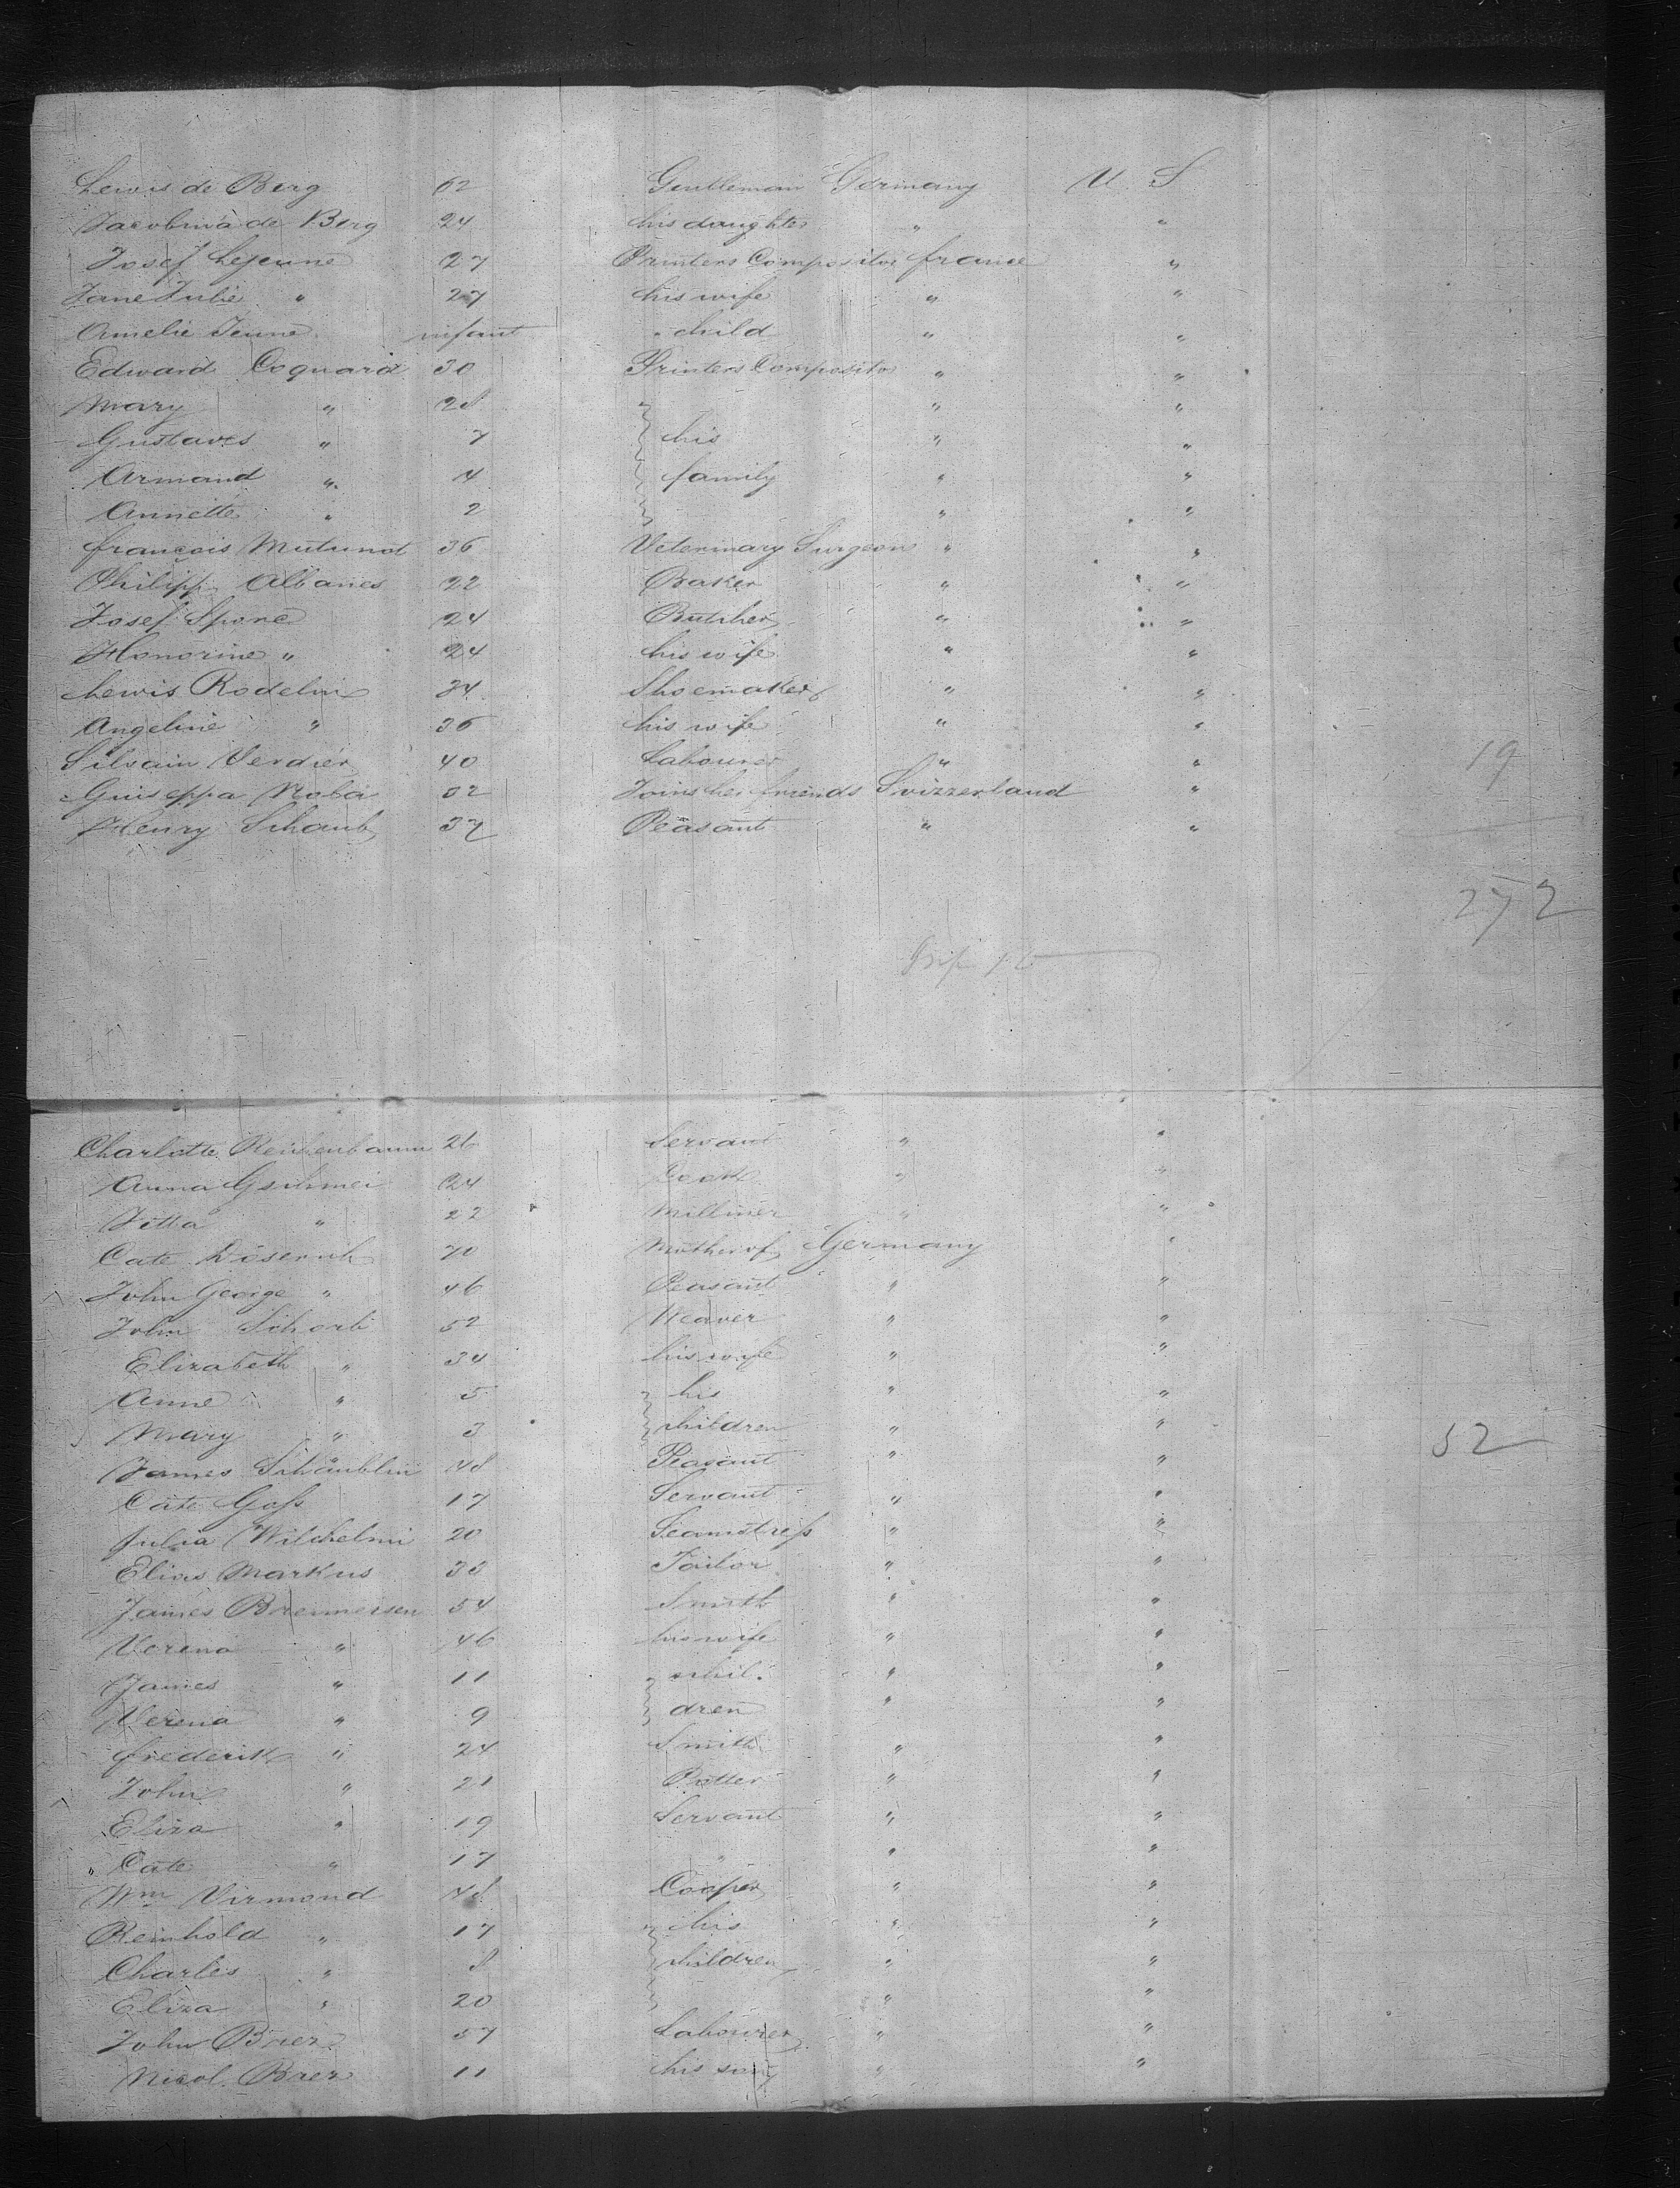 Lewis de Berg 62 Gentleman Germany U. S
Jacobina de Berg 24 his daughter " "
Josef Lejeune 27 Printers Compositor france "
Jane Julie " 27 his wife " "
Amelie Jeune infant " child " "
Edward Coquard 30 Printers Compositor " "
Mary " 28 " "
Gustaves " 7 his " "
Armand " 4 family " "
Annette " 2 " "
françois Mutunot 36 Veterinary Surgeon " "
Philipp Albanes 22 Baker " "
Josef Spone 24 Butcher " "
Honorine " 24 his wife " "
Lewis Rodelin 34 Shoemaker " "
Angeline " 36 his wife " "
Silvain Verdier 40 Labourer " "
19
Guiseppa Nolai 52 Joins her friends Svizzerland "
Henry Schaub 37 Peasant " "
272
Charlotte Reichenbaum 26 Servant " "
Anna Gschmei 24 Cook " "
Jetta " 22 Milliner " "
Cate Döserich 70 Mother of Germany "
John George " 46 Peasant " "
John Schorb 52 Weaver " "
Elizabeth " 34 his wife " "
Anne " 5 his " "
Mary " 3 children " "
52
James Schäublin 48 Peasant " "
Cate Gass 17 Servant " "
Julia Wilchelmi 20 Seamstress " "
Elias Markus 33 Tailor " "
James Brenneisen 54 Smith " "
Verena " 46 his wife " "
James " 11 chil- " "
Verena " 9 dren " "
frederik " 24 Smith " "
John " 21 Potter " "
Eliza " 19 Servant " "
" Cate " 17 " " "
Wm Virmond 48 Cooper " "
Reinhold " 17 his " "
Charles " 8 children " "
Eliza " 20 " "
John Brer 57 Labourer " "
Nicol. Brer 11 his son " "